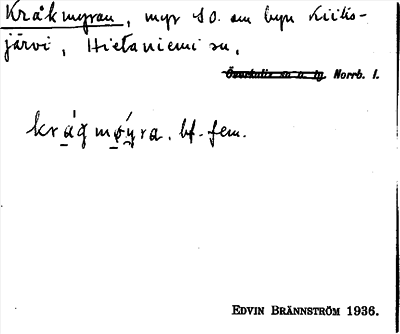 Kråkmyran, myr SO. om byn Kiiks-
järvi, Hietaniemi sn.
Överkalix sn o. tg. Norrb. l.
krågmøyra. bf. fem.
EDVIN BRÄNNSTRÖM 1936.